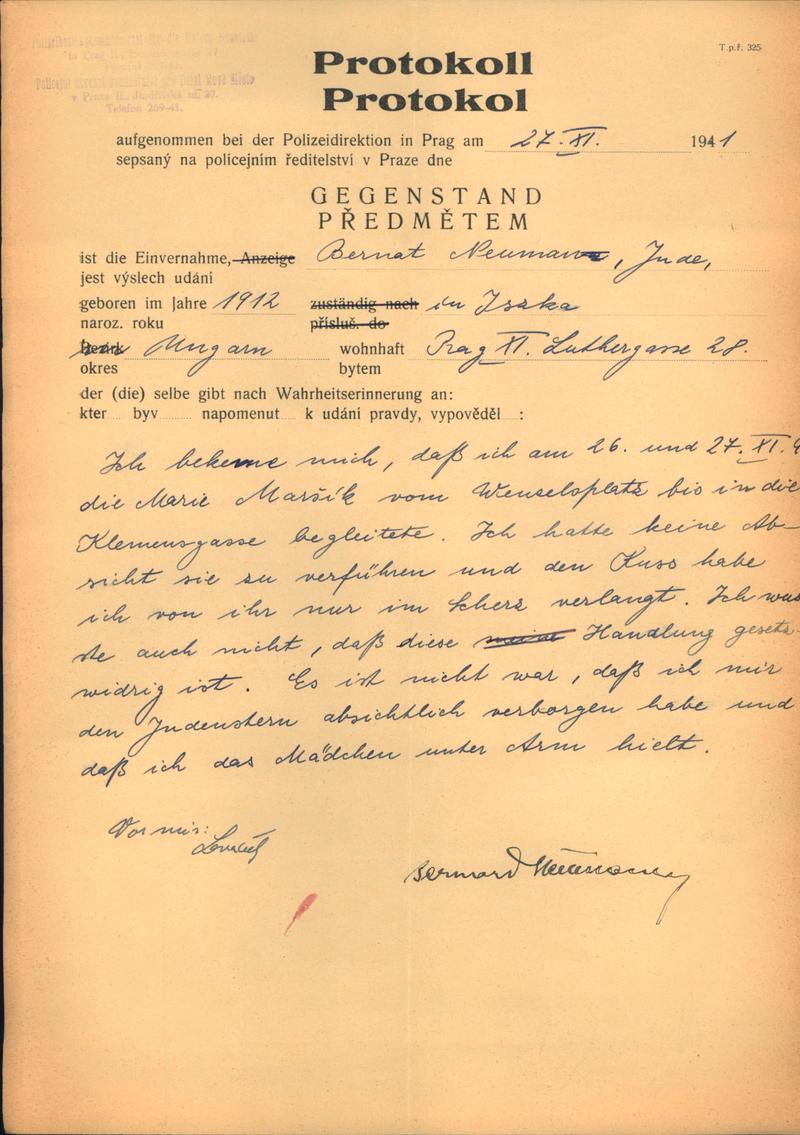 T.p.ř. 325
Protokoll
Protokol
v Praze II., Jindřišská ul. 27.
Telefon 269-41.
aufgenommen bei der Polizeidirektion in Prag am 27. XI. 1941
sepsaný na policejním ředitelství v Praze dne
GEGENSTAND
PŘEDMĚTEM
ist die Einvernahme, Anzeige Bernat Neumann, Jude,
jest výslech udání
geboren im Jahre 1912 zuständig nach in Iszka
naroz. roku přísluš. do
Bezirk Ungarn wohnhaft Prag XI. Luthergasse 28.
okres bytem
der (die) selbe gibt nach Wahrheitserinnerung an:
kter byv napomenut k udání pravdy, vypověděl :
Ich bekenne mich, daß ich am 26. und 27. XI. 4
die Marie Maršik vom Wenselsplatz bis in die
Klemensgasse begleitete. Ich hatte keine Ab-
sicht sie zu verführen und den Kuss habe
ich von ihr nur im Scherz verlangt. Ich wus
ste auch nicht, daß diese meine Handlung gesetz-
widrig ist. Es ist nicht war, daß ich mir
den Judenstern absichtlich verborgen habe und
daß ich das Mädchen unter Arm hielt.
Vor mir:
Bernard Neumann